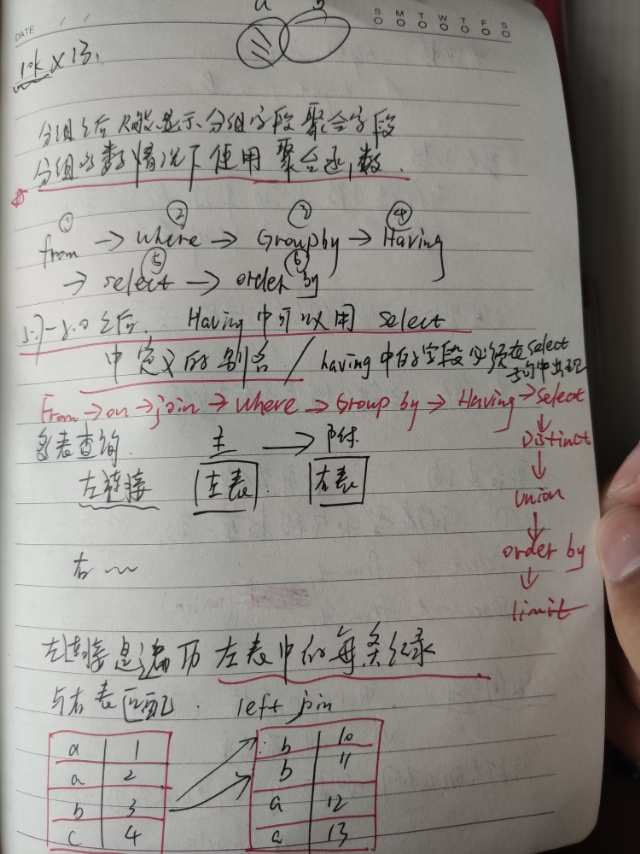 a B
DATE
S M T W T F S
10k x 13.
分组之后只能显示分组字段 聚合字段
分组的数情况下使用聚合函数.
① ② ③ ④
from → where → Group by → Having
⑤ ⑥
→ select → order by
5.7-8.0之后. Having中可以用 select
中定义的别名 / having中的字段必须在select
子句中出现
From → on → join → where → Group by → Having → select
↓
Distinct
↓
union
↓
order by
↓
limit
多表查询 主 → 附
左连接 左表 右表
右 〰
左连接是遍历左表中的每条纪录
与右表匹配. left join
a 1
a 2
b 3
c 4
b 10
b 11
a 12
a 13